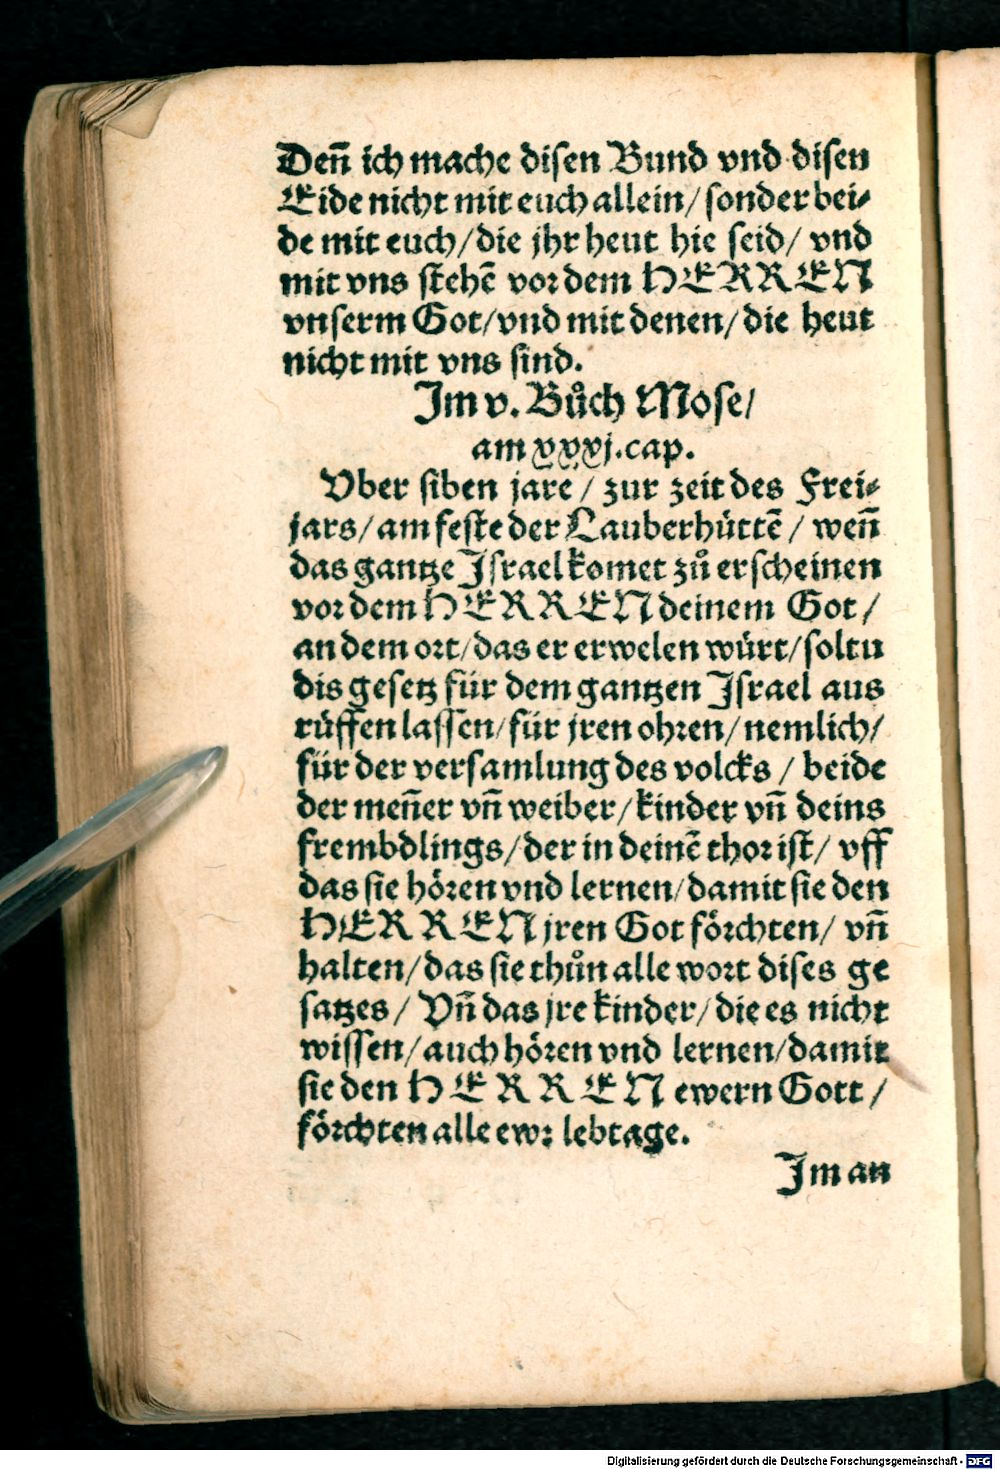 Deñ ich mache disen Bund vnd disen
Eide nicht mit euch allein/ sonder bei⸗
de mit euch/ die jhr heut hie seid/ vnd
mit vns stehē vor dem HERREN
vnserm Got/ vnd mit denen/ die heut
nicht mit vns sind.
Im v. Bůch Mose/
am xxxj. cap.
Vber siben jare/ zur zeit des Frei⸗
jars/ am feste der Lauberhüttē/ weñ
das gantze Israel komet zů erscheinen
vor dem HERREN deinem Got/
an dem ort/ das er erwelen würt/ soltu
dis gesetz für dem gantzen Israel aus
rüffen lassen/ für jren ohren/ nemlich/
für der versamlung des volcks/ beide
der meñer vñ weiber/ kinder vñ deins
frembdlings/ der in deinē thor ist/ vff
das sie hören vnd lernen/ damit sie den
HERREN jren Got förchten/ vñ
halten/ das sie thůn alle wort dises ge
satzes/ Vñ das jre kinder/ die es nicht
wissen/ auch hören vnd lernen/ damit
sie den HERREN ewern Gott/
förchten alle ewr lebtage.
Im an
Digitalisierung gefördert durch die Deutsche Forschungsgemeinschaft - DFG